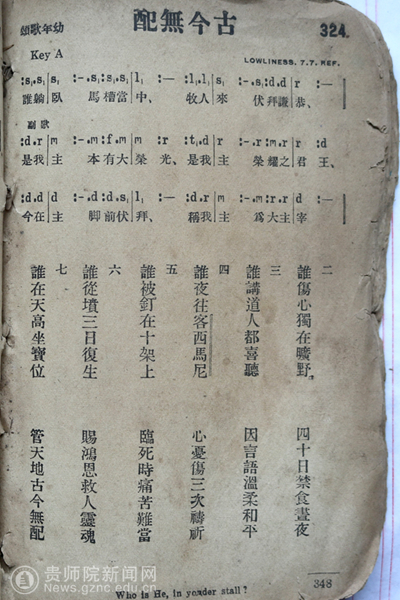 幼年歌頌
古今無配
324.
Key A
LOWLINESS. 7.7. REF.
:s₁.s₁ | s₁ :-.s₁ :s₁.s₁ | l₁ :— :l₁.l₁ | s₁ :-.s₁ :d.d | r :—
誰躺臥 馬槽當中、 牧人來 伏拜謙恭、
副歌
:d.r | m :-.m :f.m | r :t₁.d | r :-.m :r.r | :d
是我主 本有大榮光、是我主 榮耀之君王、
:d.d | d :-.d :d.s₁ | l₁ :— :d.r | m :-.m :r.r | d :—
今在主 脚前伏拜、 稱我主 爲大主宰
二 誰傷心獨在曠野 四十日禁食晝夜
三 誰講道人都喜聽 因言語溫柔和平
四 誰夜往客西馬尼 心憂傷三次禱祈
五 誰被釘在十架上 臨死時痛苦難當
六 誰從墳三日復生 賜鴻恩救人靈魂
七 誰在天高坐寶位 管天地古今無配
Who is He, in yonder stall?
348
贵师院新闻网
News.gznc.edu.cn